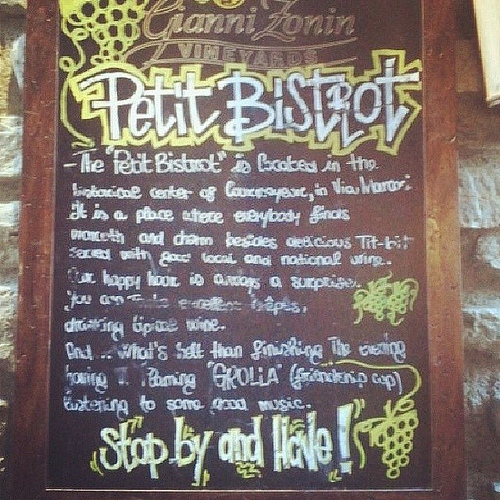 Gianni Zonin
VINEYARDS
Petit Bistrot
- The "Petit Bistrot" is located in the
historical center of Courmayeur, in Via Marconi
It is a place where everybody finds
warmth and charm besides delicious Tit-bit
served with good local and national wine.
Our happy hour is always a surprise.
You can taste excellent crêpes,
drinking tipical wine.
And .. What's better than finishing the evening
having a flaming "GROLLA" (friendship cup)
listening to some good music.
Stop by and Have!